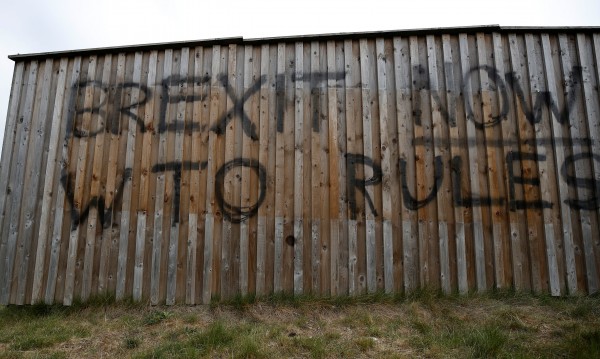 BREXIT NOW
WTO RULES